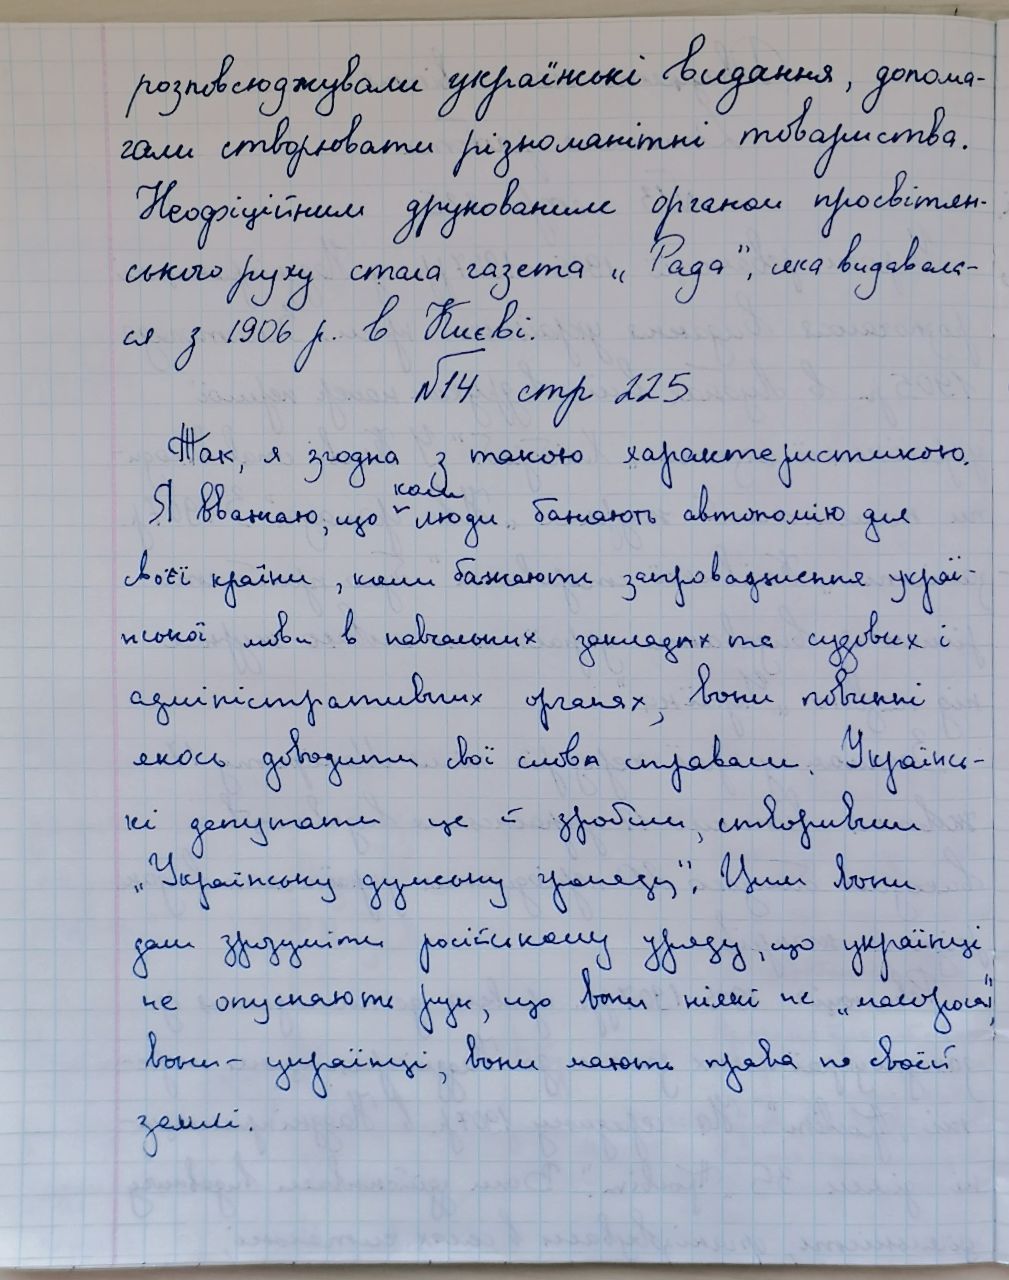 розповсюджували українські видання, допома-
гали створювати різноманітні товариства.
Неофіційним друкованим органом просвітян-
ського руху стала газета „Рада", яка видавала-
ся з 1906 р. в Києві.
№14 стр 225
Так, я згодна з такою характеристикою.
Я вважаю, що коли люди бажають автономію для
своєї країни, коли бажають запровадження украї-
нської мови в навчальних закладах та судових і
адміністративних органах, вони повинні
якось доводити свої слова справами. Українсь-
кі депутати це й зробили, створивши
„Українську думську громаду". Цим вони
дали зрозуміти російському уряду, що українці
не опускають рук, що вони ніякі не „малороси",
вони – українці, вони мають права на своїй
землі.